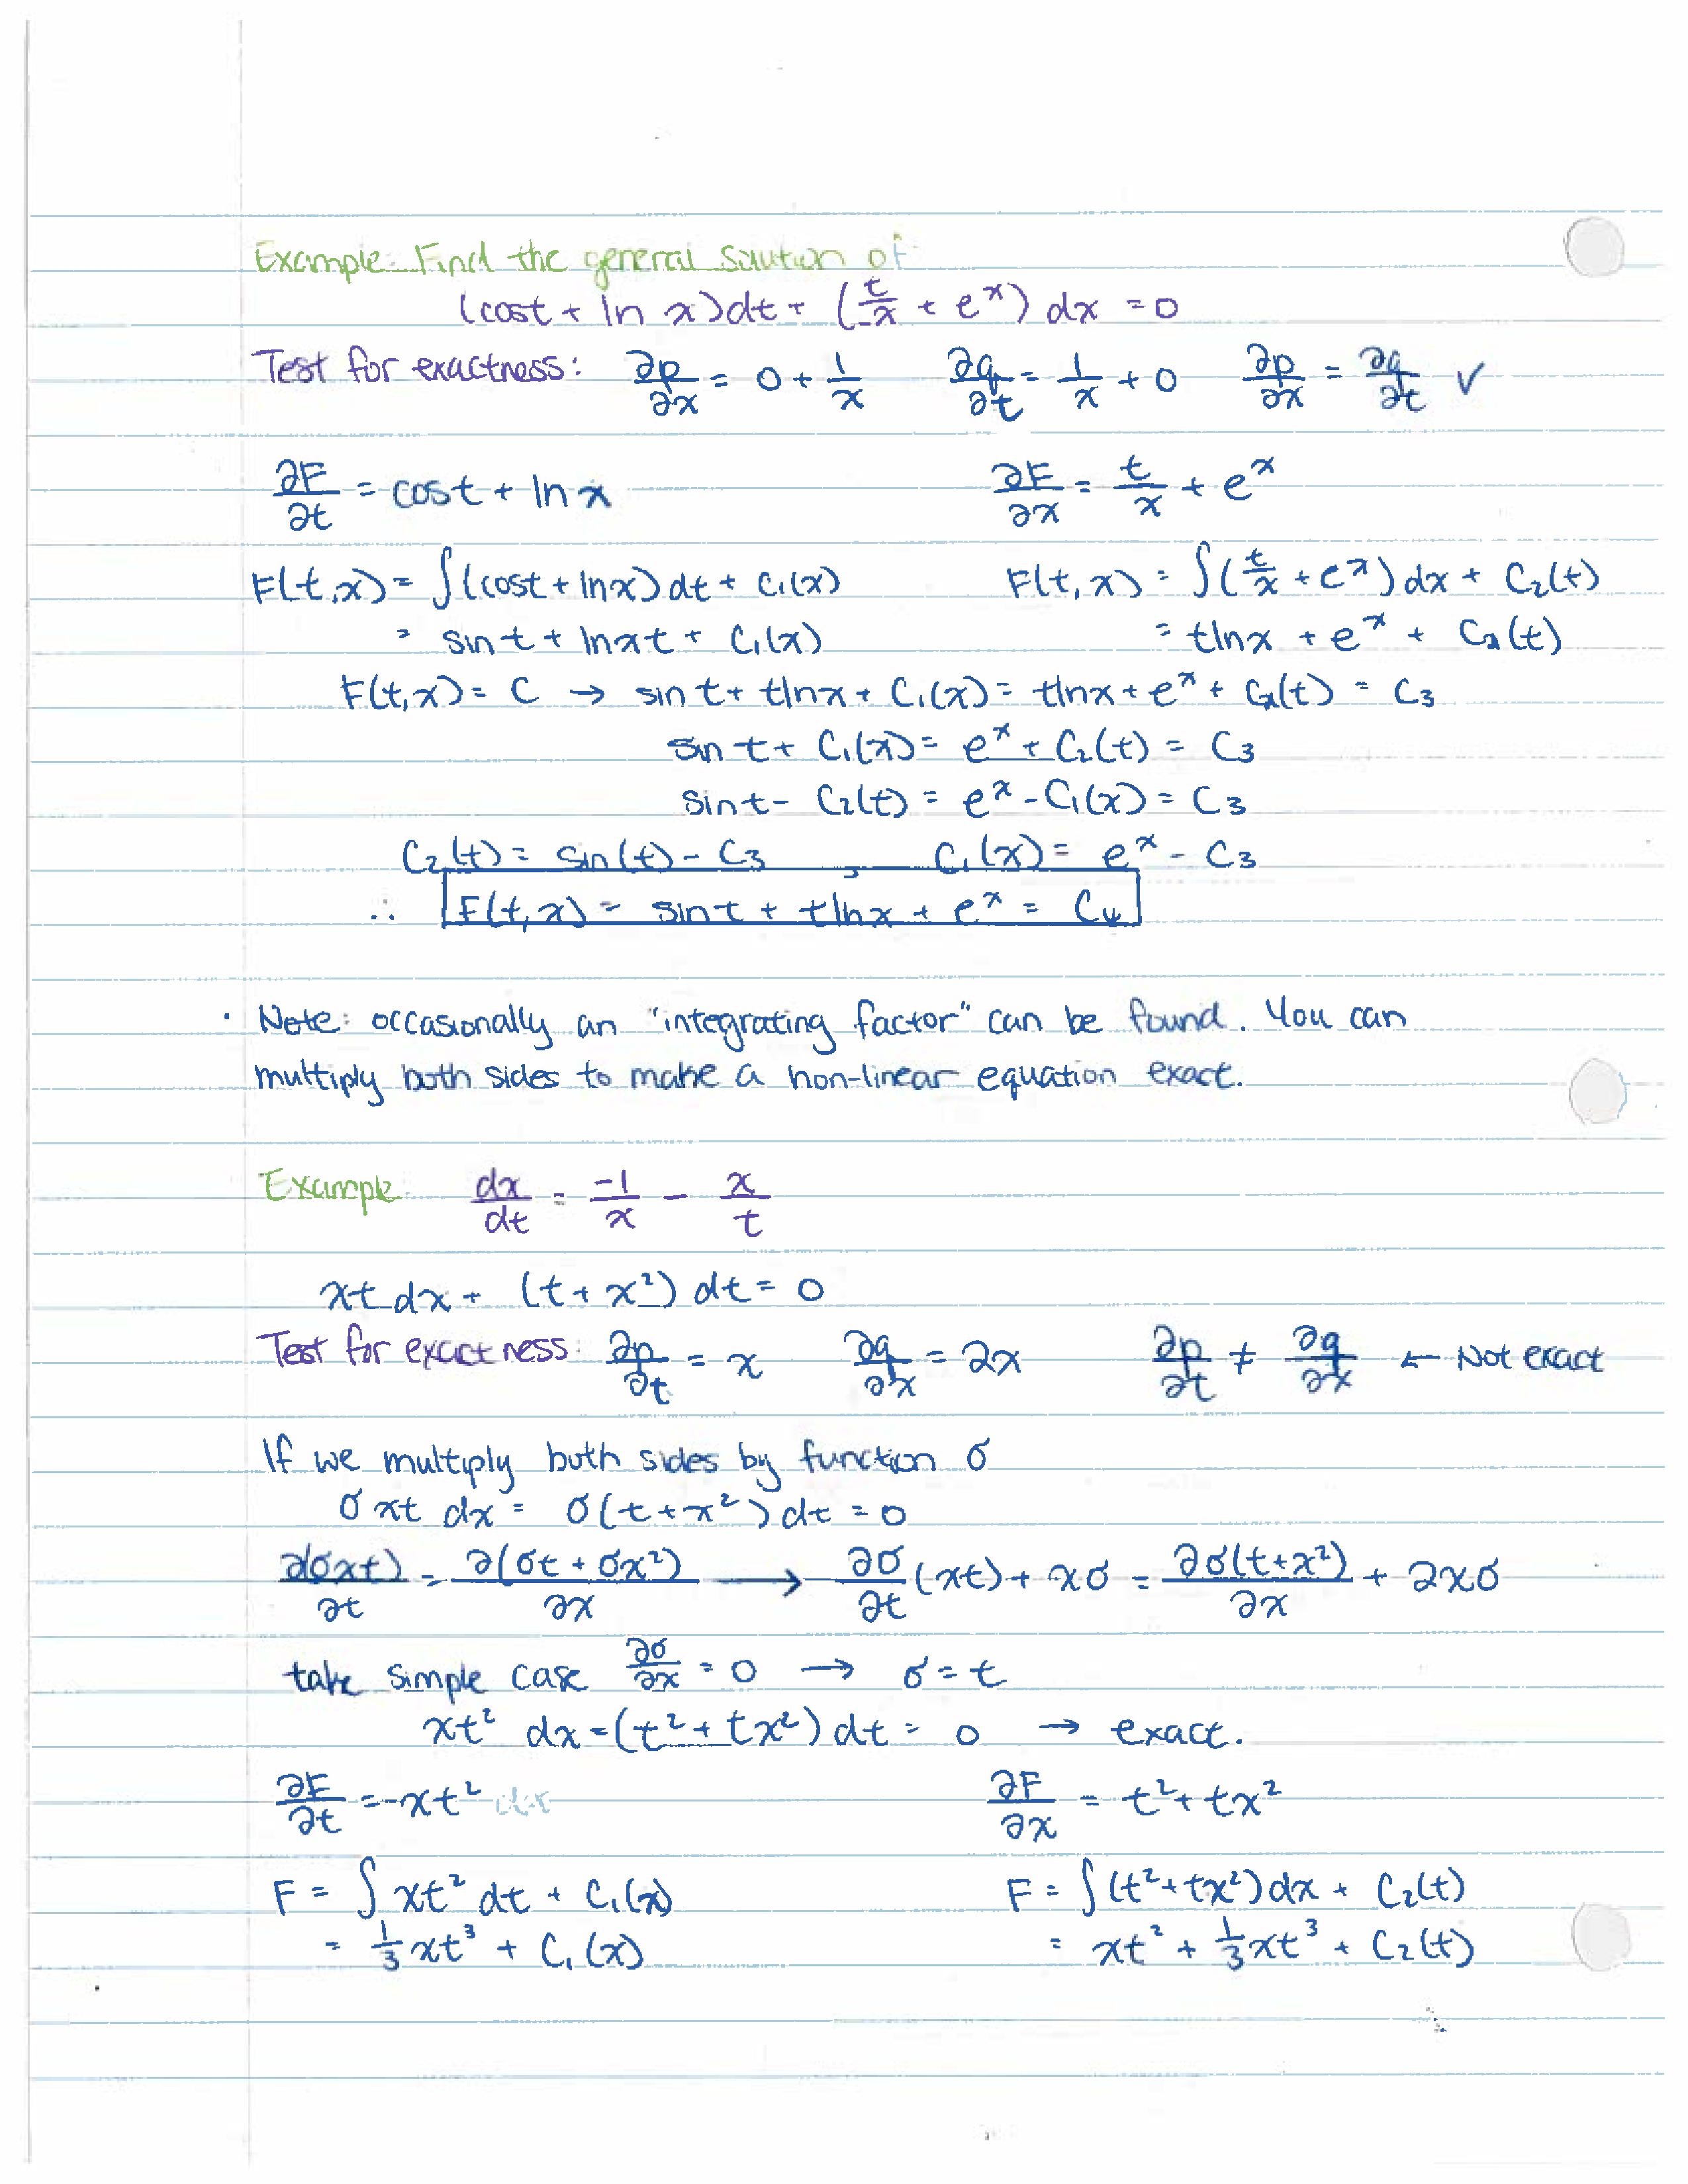 Example: Find the general solution of
(cost + ln x)dt + (t/x + e^x) dx = 0
Test for exactness: ∂p/∂x = 0 + 1/x ∂q/∂t = 1/x + 0 ∂p/∂x = ∂q/∂t ✓
∂F/∂t = cost + ln x ∂F/∂x = t/x + e^x
F(t,x) = ∫(cost + lnx)dt + C₁(x) F(t,x) = ∫(t/x + e^x)dx + C₂(t)
= sint + lnxt + C₁(x) = tlnx + e^x + C₂(t)
F(t,x) = C → sint + tlnx + C₁(x) = tlnx + e^x + C₂(t) = C₃
sint + C₁(x) = e^x + C₂(t) = C₃
sint - C₂(t) = e^x - C₁(x) = C₃
C₂(t) = sin(t) - C₃ , C₁(x) = e^x - C₃
∴ F(t,x) = sint + tlnx + e^x = C₄
· Note: occasionally an "integrating factor" can be found. You can
multiply both sides to make a non-linear equation exact.
Example dx/dt = -1/x - x/t
xt dx + (t + x²) dt = 0
Test for exactness: ∂p/∂t = x ∂q/∂x = 2x ∂p/∂t ≠ ∂q/∂x ← Not exact
If we multiply both sides by function σ
σxt dx = σ(t + x²)dt = 0
∂(σxt)/∂t = ∂(σt + σx²)/∂x → ∂σ/∂t (xt) + xσ = ∂σ(t+x²)/∂x + 2xσ
take simple case ∂σ/∂x = 0 → σ = t
xt² dx = (t² + tx²)dt = 0 → exact.
∂F/∂t = -xt² dx ∂F/∂x = t² + tx²
F = ∫ xt² dt + C₁(x) F = ∫(t² + tx²)dx + C₂(t)
= 1/3 xt³ + C₁(x) = xt² + 1/3 xt³ + C₂(t)